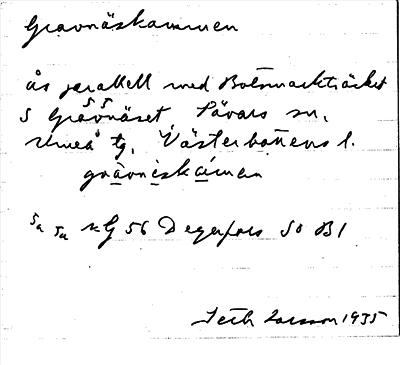 Gravnäskammen
ås parallell med Botsmarkträsket
S Gravnäset, Sävars sn,
Umeå tg, Västerbottens l.
gràvnèskámen
5a 5a kG 56 Degerfors SO B1
Seth Larsson 1935